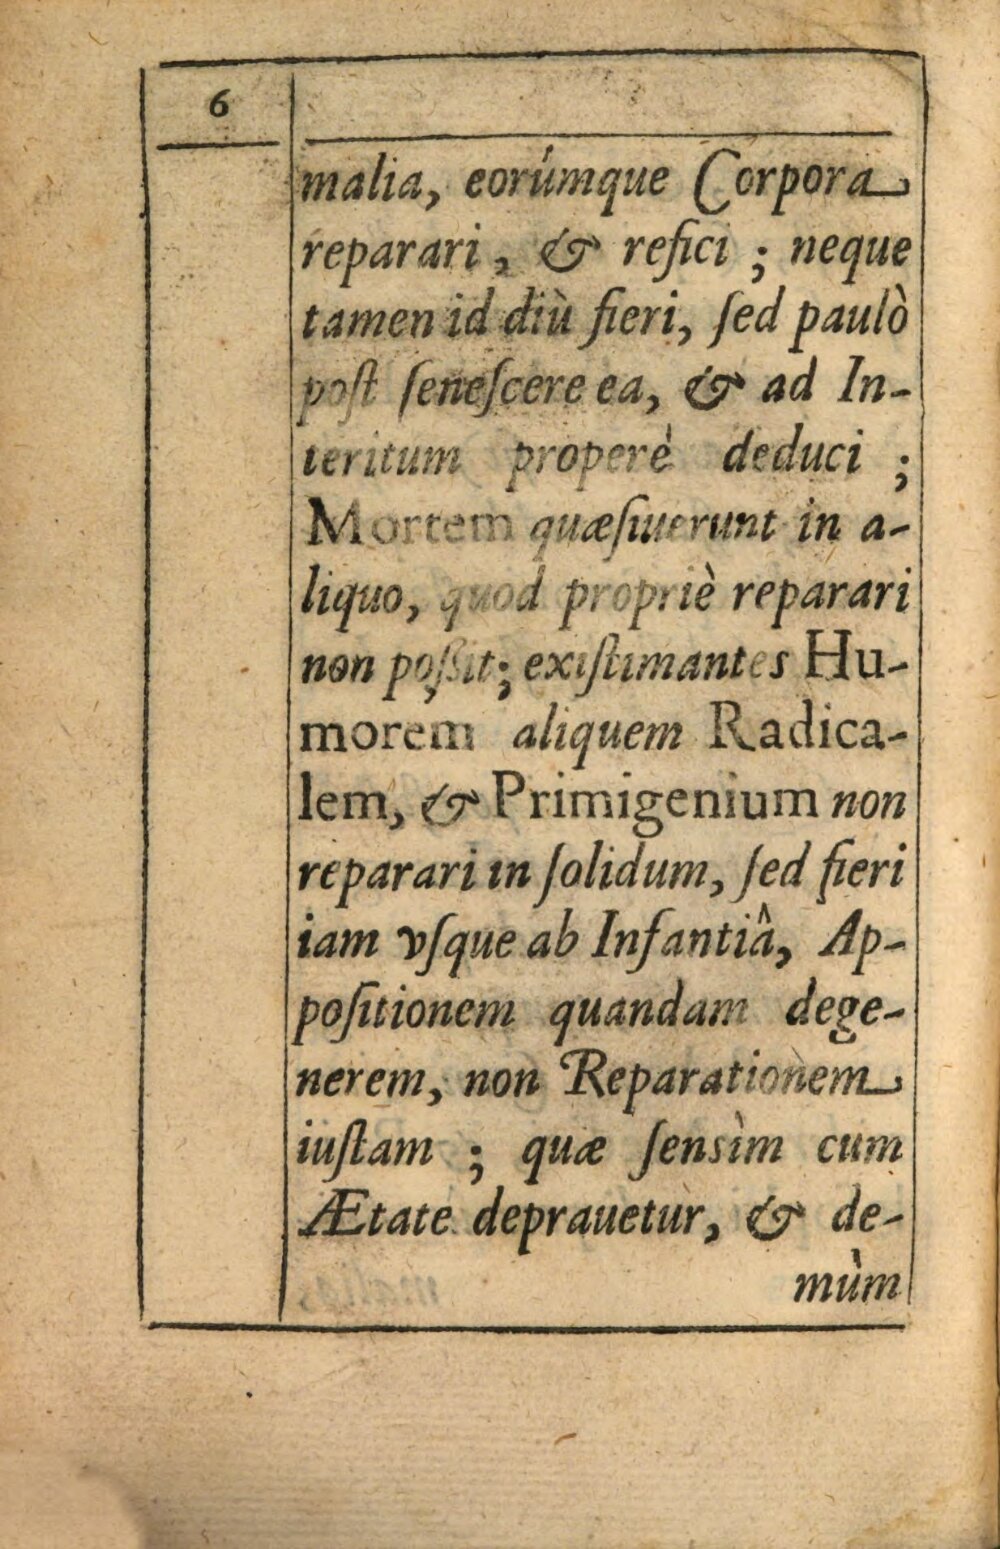 6
malia, eorúmque Corpora
reparari, & refici; neque
tamen id diù fieri, ſed paulò
poſt ſeneſcere ea, & ad In-
teritum properè deduci;
Mortem quæſiuerunt in a-
liquo, quod propriè reparari
non poßit; exiſtimantes Hu-
morem aliquem Radica-
lem, & Primigenium non
reparari in ſolidum, ſed fieri
iam vſque ab Infantiâ, Ap-
poſitionem quandam dege-
nerem, non Reparationem
iuſtam; quæ ſensìm cum
Ætate deprauetur, & de-
mùm